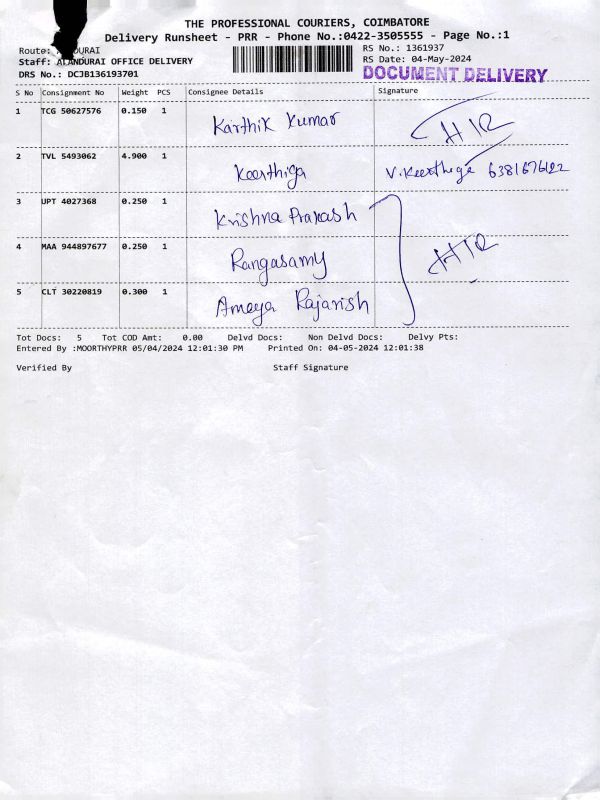 THE PROFESSIONAL COURIERS, COIMBATORE
Delivery Runsheet - PRR - Phone No.:0422-3505555 - Page No.:1
Route: DURAI
RS No.: 1361937
Staff: ALANDURAI OFFICE DELIVERY
RS Date: 04-May-2024
DRS No.: DCJB136193701
DOCUMENT DELIVERY
S No Consignment No Weight PCS Consignee Details Signature
1 TCG 50627576 0.150 1 Karthik Kumar HIR
2 TVL 5493062 4.900 1 Keerthiga V.Keerthega
3 UPT 4027368 0.250 1 Krishna Prakash
4 MAA 944897677 0.250 1 Rangasamy HIR
5 CLT 30220819 0.300 1 Ameya Rajarish
Tot Docs: 5 Tot COD Amt: 0.00 Delvd Docs: Non Delvd Docs: Delvy Pts:
Entered By :MOORTHYPRR 05/04/2024 12:01:30 PM Printed On: 04-05-2024 12:01:38
Verified By Staff Signature